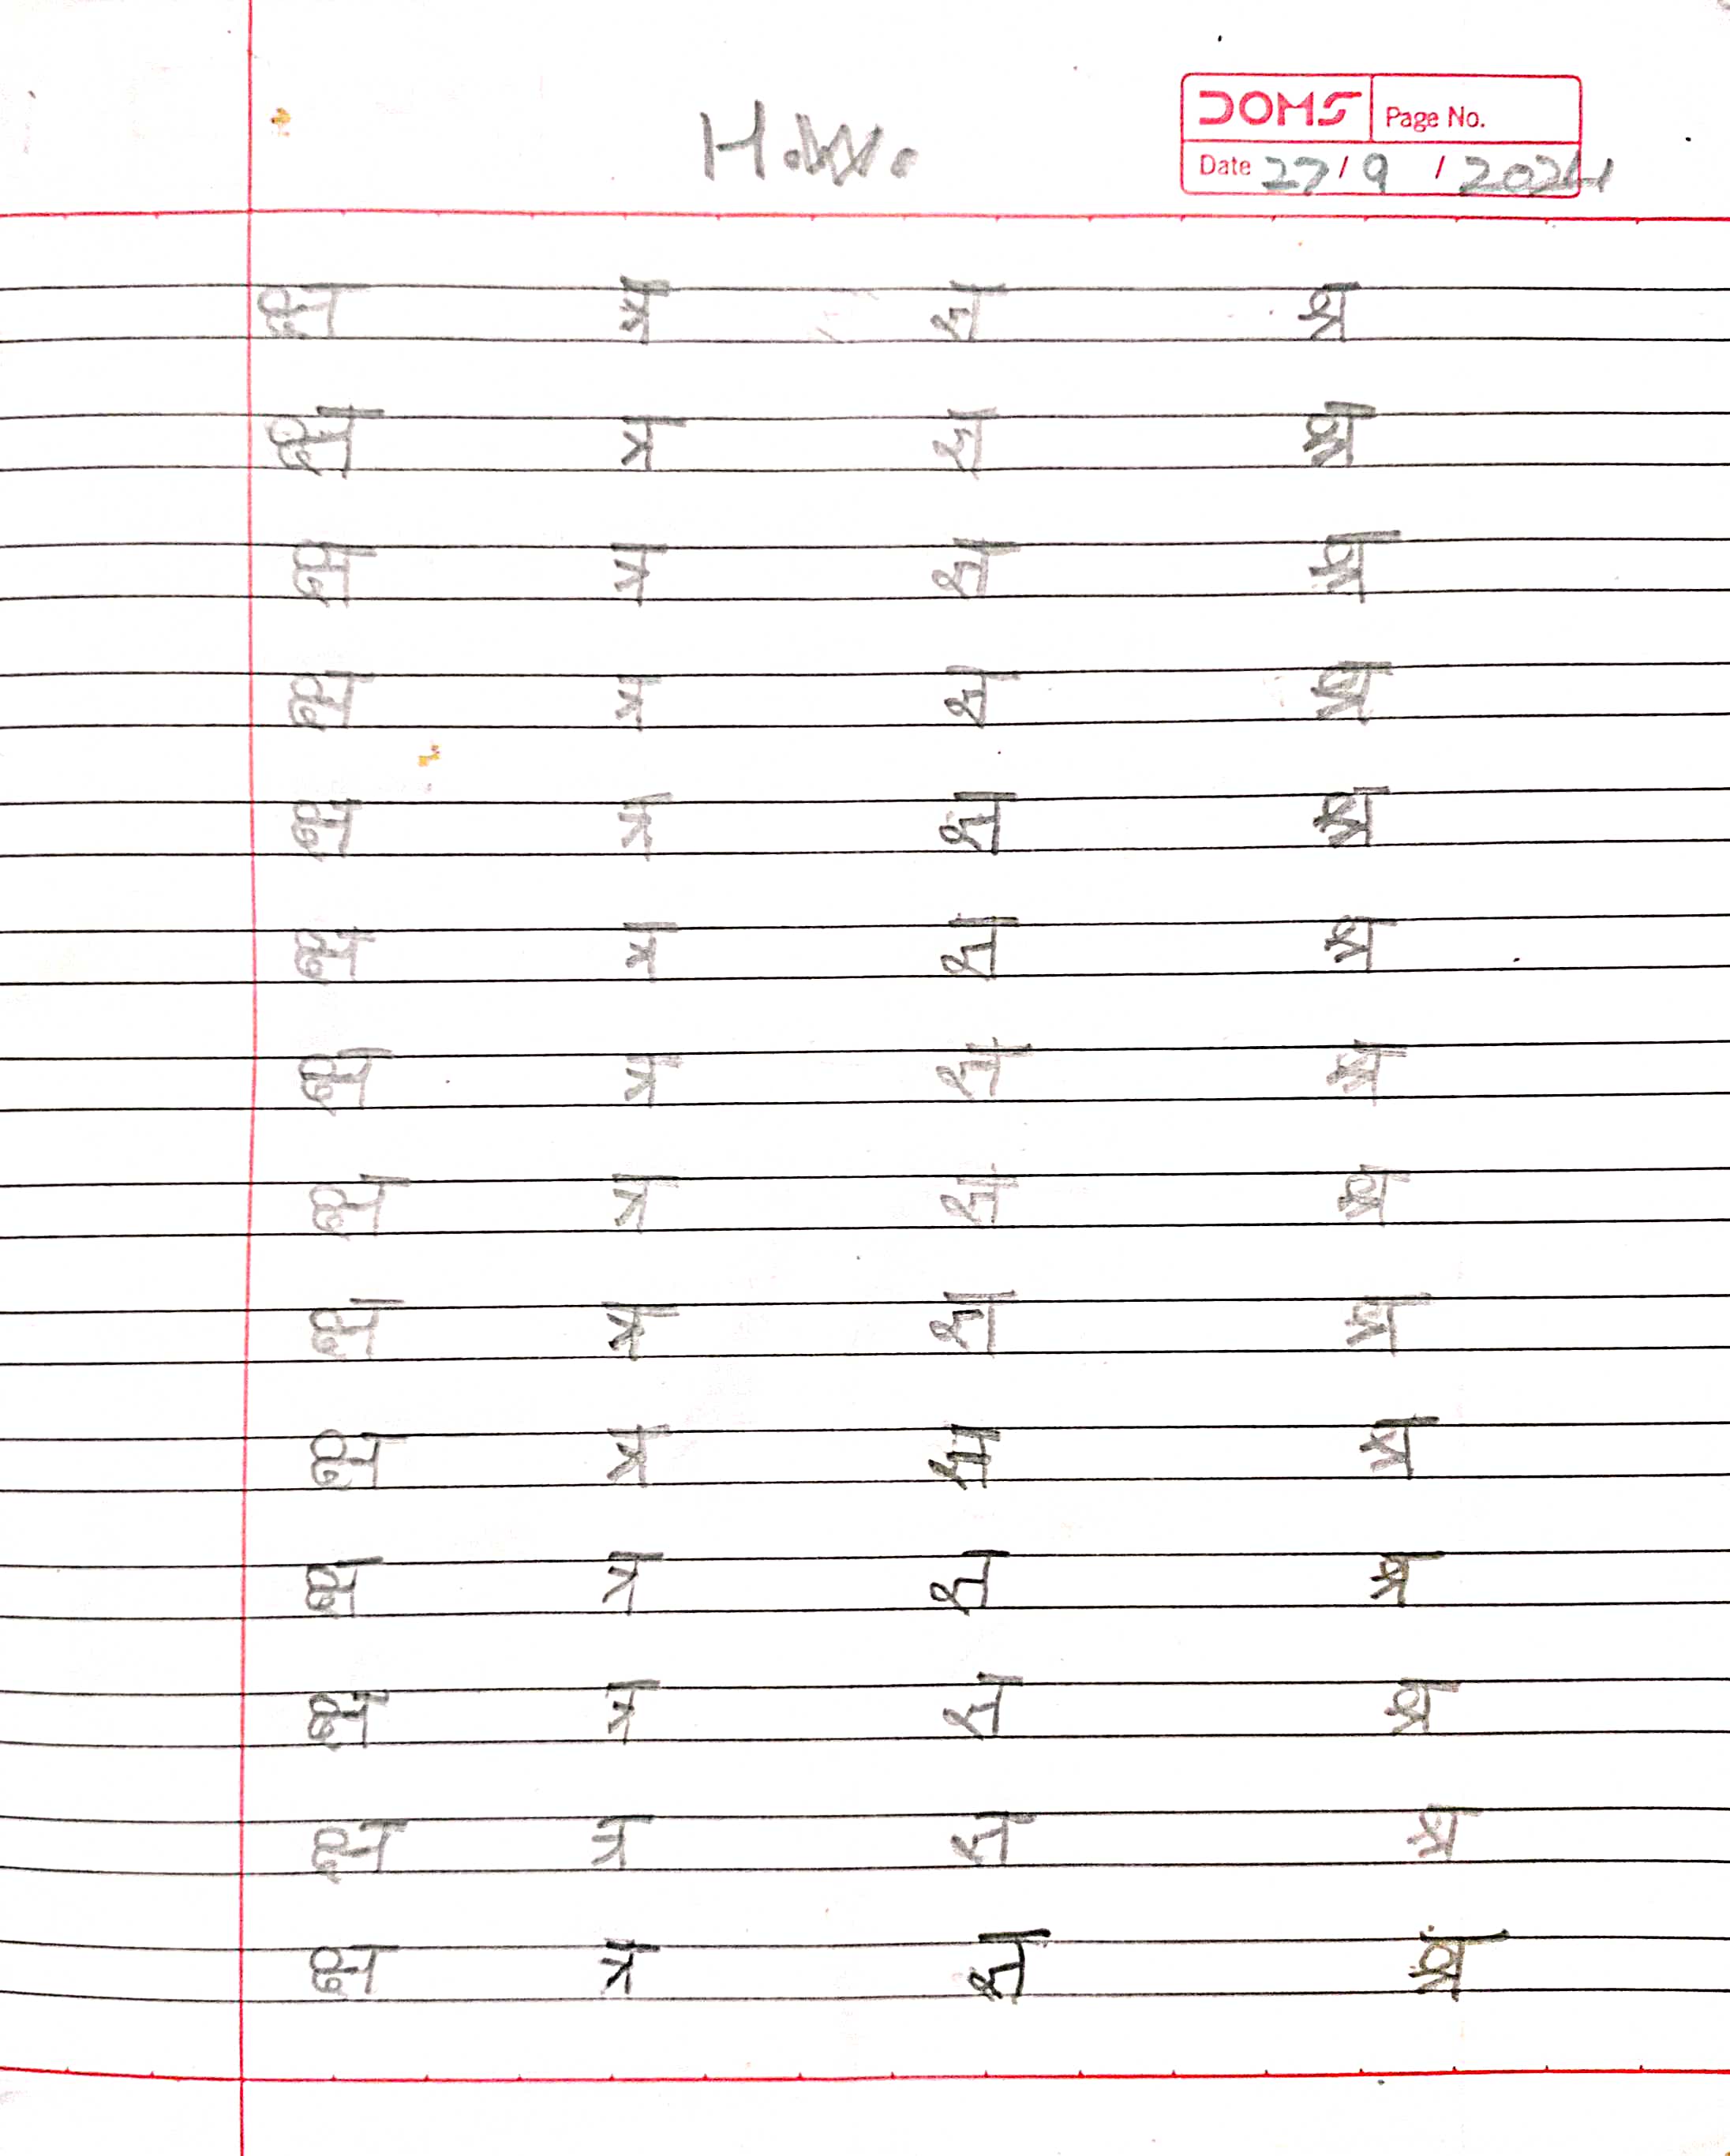 H.W.
DOMS Page No.
Date 27/9/2024
क्ष त्र ज्ञ श्र
क्ष त्र ज्ञ श्र
क्ष त्र ज्ञ श्र
क्ष त्र ज्ञ श्र
क्ष त्र ज्ञ श्र
क्ष त्र ज्ञ श्र
क्ष त्र ज्ञ श्र
क्ष त्र ज्ञ श्र
क्ष त्र ज्ञ श्र
क्ष त्र ज्ञ श्र
क्ष त्र ज्ञ श्र
क्ष त्र ज्ञ श्र
क्ष त्र ज्ञ श्र
क्ष त्र ज्ञ श्र